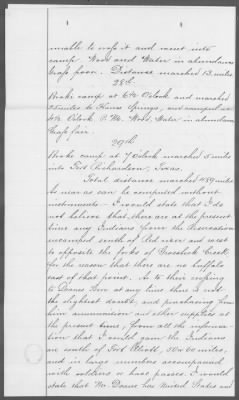 unable to cross it and went into
camp. Wood and Water in abundance
Grass poor. Distance marched 13 miles
28th
Broke camp at 6½ O'clock and marched
25 miles to Hams Springs, and camped at
4½ O'clock P.M. Wood, Water in abundance
Grass fair.
29th
Broke camp at 7 O'clock marched 5 miles
into Fort Richardson, Texas.
Total distance marched 489 miles
as near as can be computed without
instruments — I would state that I do
not believe that there are at the present
time any Indians from the Reservation
encamped south of Red river and west
to opposite the forks of Groesbeck Creek
for the reason that there are no buffalo
east of that point. As to their resorting
to Doans Store at any time there is not
the slightest doubt, and purchasing from
him ammunition and other supplies at
the present time, from all the informa-
tion that I could gain the Indians
are south of Fort Elliott, 50 or 60 miles,
and in large numbers accompanied
with soldiers or have passes. I would
state that Mr. Doans has United States and